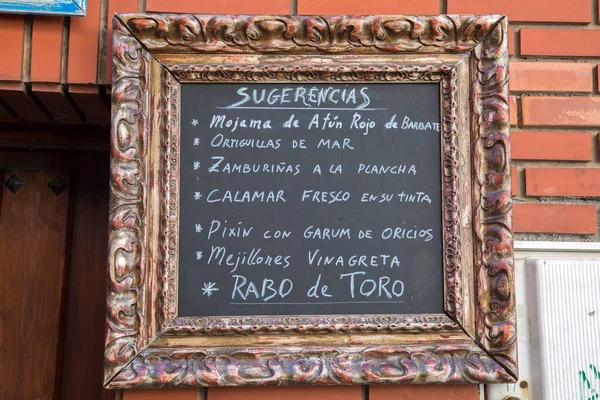 SUGERENCIAS
* Mojama de Atún Rojo de BARBATE
* ORTIGUILLAS DE MAR
* ZAMBURIÑAS A LA PLANCHA
* CALAMAR FRESCO EN SU TINTA
* PIXÍN CON GARUM DE ORICIOS
* Mejillones VINAGRETA
* RABO de TORO